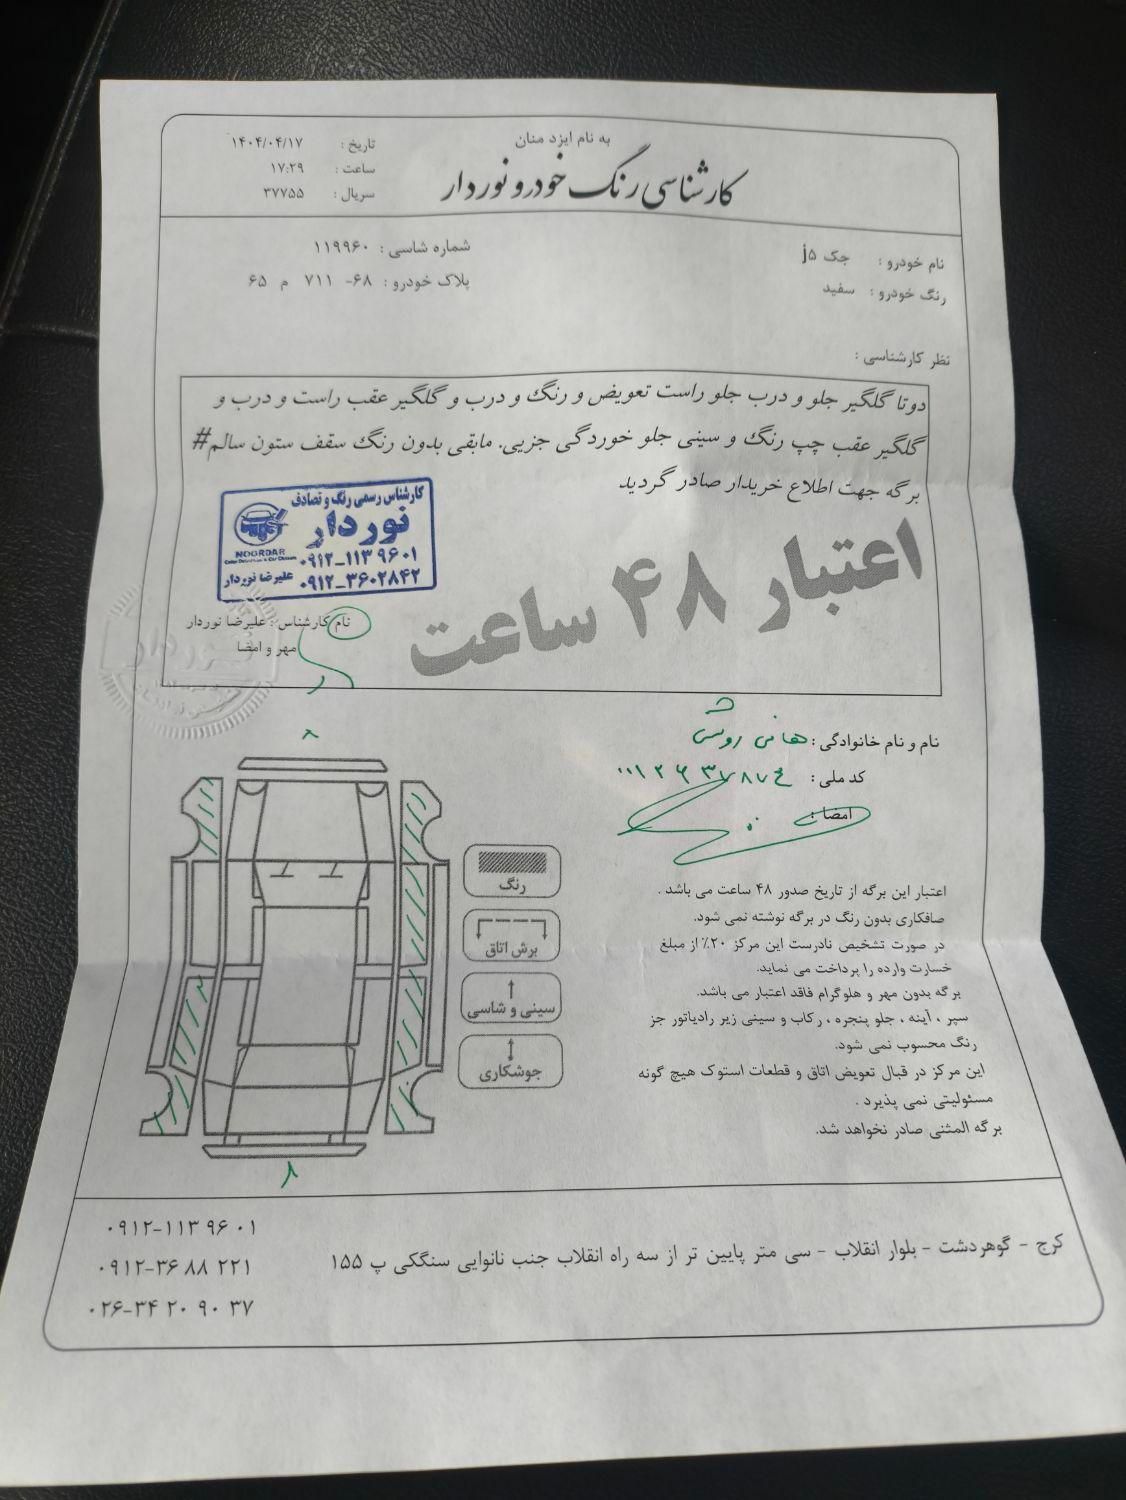 به نام ایزد منان
کارشناسی رنگ خودرو نوردار
تاریخ : ۱۴۰۴/۰۴/۱۷
ساعت : ۱۷:۲۹
سریال : ۳۷۷۵۵
نام خودرو : جک j۵
رنگ خودرو : سفید
شماره شاسی : ۱۱۹۹۶۰
پلاک خودرو : ۶۸- ۷۱۱ م ۶۵
نظر کارشناسی :
دوتا گلگیر جلو و درب جلو راست تعویض و رنگ و درب و گلگیر عقب راست و درب و
گلگیر عقب چپ رنگ و سینی جلو خوردگی جزیی. مابقی بدون رنگ سقف ستون سالم#
برگه جهت اطلاع خریدار صادر گردید
کارشناس رسمی رنگ و تصادف
نوردار
NOORDAR
۰۹۱۲-۱۱۳ ۹۶۰۱
۰۹۱۲-۳۶۰۲۸۴۲
علیرضا نوردار
اعتبار ۴۸ ساعت
نام کارشناس : علیرضا نوردار
مهر و امضا
نوردار
نام و نام خانوادگی : هانی
کد ملی :
امضا :
رنگ
برش اتاق
سینی و شاسی
جوشکاری
اعتبار این برگه از تاریخ صدور ۴۸ ساعت می باشد .
صافکاری بدون رنگ در برگه نوشته نمی شود.
در صورت تشخیص نادرست این مرکز ۲۰٪ از مبلغ
خسارت وارده را پرداخت می نماید.
برگه بدون مهر و هلوگرام فاقد اعتبار می باشد.
سپر ، آینه ، جلو پنجره ، رکاب و سینی زیر رادیاتور جز
رنگ محسوب نمی شود.
این مرکز در قبال تعویض اتاق و قطعات استوک هیچ گونه
مسئولیتی نمی پذیرد .
برگه المثنی صادر نخواهد شد.
کرج - گوهردشت - بلوار انقلاب - سی متر پایین تر از سه راه انقلاب جنب نانوایی سنگکی پ ۱۵۵
۰۹۱۲-۱۱۳ ۹۶ ۰۱
۰۹۱۲-۳۶ ۸۸ ۲۲۱
۰۲۶-۳۴ ۲۰ ۹۰ ۳۷